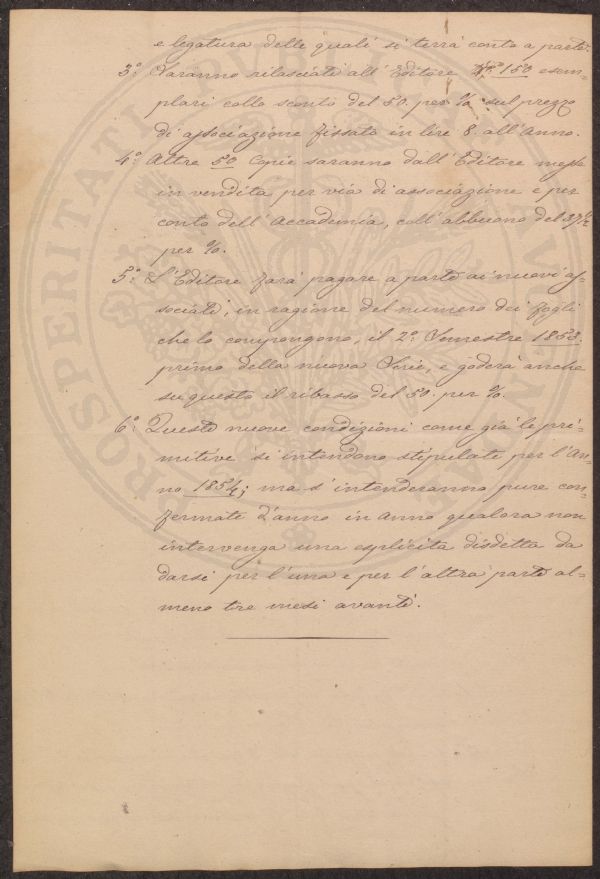 e legatura delle quali si terrà conto a parte.
3.° Saranno rilasciati all'Editore N.° 150 esem-
plari collo sconto del 50. per % sul prezzo
di associazione fissato in lire 8. all'anno.
4.° Altre 50 Copie saranno dall'Editore messe
in vendita per via di associazione e per
conto dell'Accademia, coll'abbuono del 37½
per %.
5.° L'Editore farà pagare a parte ai nuovi as-
sociati, in ragione del numero dei fogli
che lo compongono, il 2.° Semestre 1853.
primo della nuova Serie, e goderà anche
su questo il ribasso del 50. per %.
6.° Queste nuove condizioni come già le pri-
mitive si intendono stipulate per l'an-
no 1854; ma s'intenderanno pure con-
fermate d'anno in anno qualora non
intervenga una esplicita disdetta da
darsi per l'una e per l'altra parte al-
meno tre mesi avanti.
PROSPERITATI PUBLICAE AUGENDAE